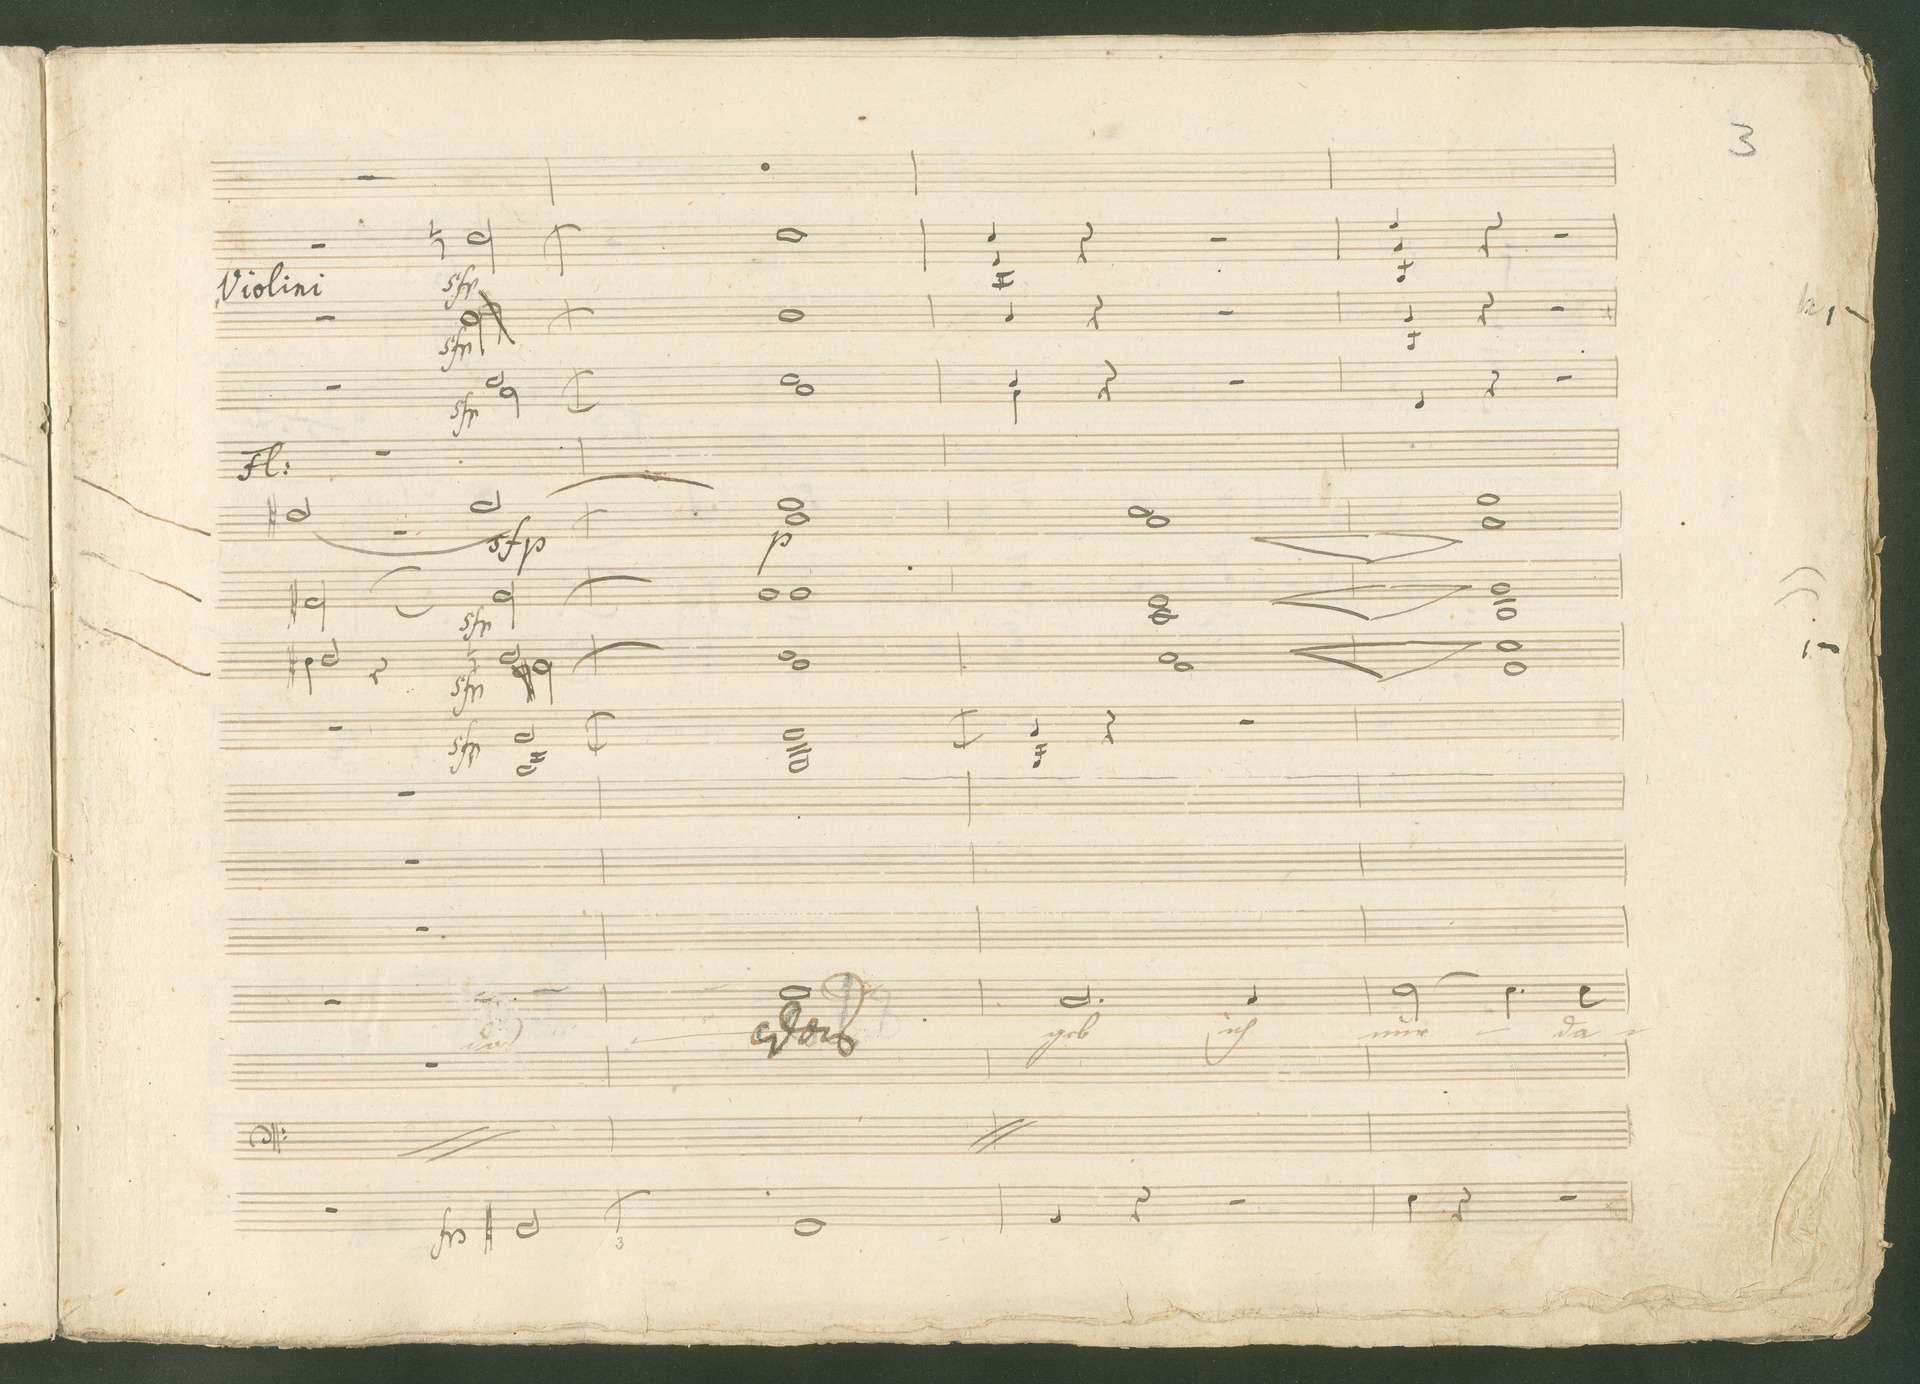 3
Violini sfp
sfp
sfp
Fl:
sfp p
sfp
sfp
sfp
geb ich nur - da -
fp
3